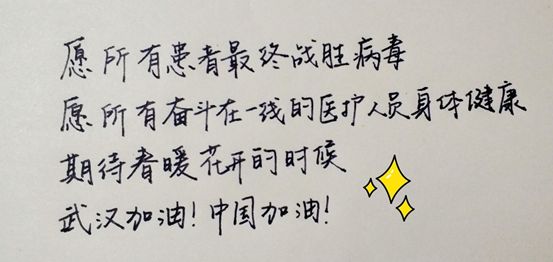 愿所有患者最终战胜病毒
愿所有奋斗在一线的医护人员身体健康
期待春暖花开的时候
武汉加油!中国加油!